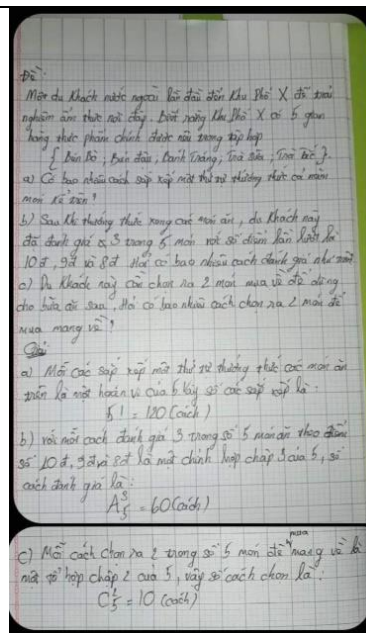 Đề:
Một du khách nước ngoài lần đầu đến Khu Phố X để trải
nghiệm ẩm thực nơi đây. Biết rằng Khu Phố X có 5 gian
hàng thực phẩm chính được nêu trong tập hợp
{ Bún Bò ; Bún đậu ; Bánh Tráng ; Trà sữa ; Trái }.
a) Có bao nhiêu cách sắp xếp một thứ tự thưởng thức cả năm
món kể trên?
b) Sau khi thưởng thức xong các món ăn, du khách này
đã đánh giá 3 trong 5 món với số điểm lần lượt là
10đ, 9đ và 8đ. Hỏi có bao nhiêu cách đánh giá như
c) Du Khách này cần chọn ra 2 món mua về để dùng
cho bữa ăn sau, Hỏi có bao nhiêu cách chọn ra 2 món để
mua mang về?
Giải:
a) Mỗi các sắp xếp một thứ tự thưởng thức các món ăn
trên là một hoán vị của 5 Vậy số các sắp xếp là:
5! = 120 (cách)
b) với mỗi cách đánh giá 3 trong số 5 món ăn theo điểm
số 10đ, 9đ và 8đ là một chỉnh hợp chập 3 của 5, số
cách đánh giá là:
A³₅ = 60 (cách)
c) Mỗi cách chọn ra 2 trong số 5 món để mua mang về là
một tổ hợp chập 2 của 5, vậy số cách chọn là:
C²₅ = 10 (cách)